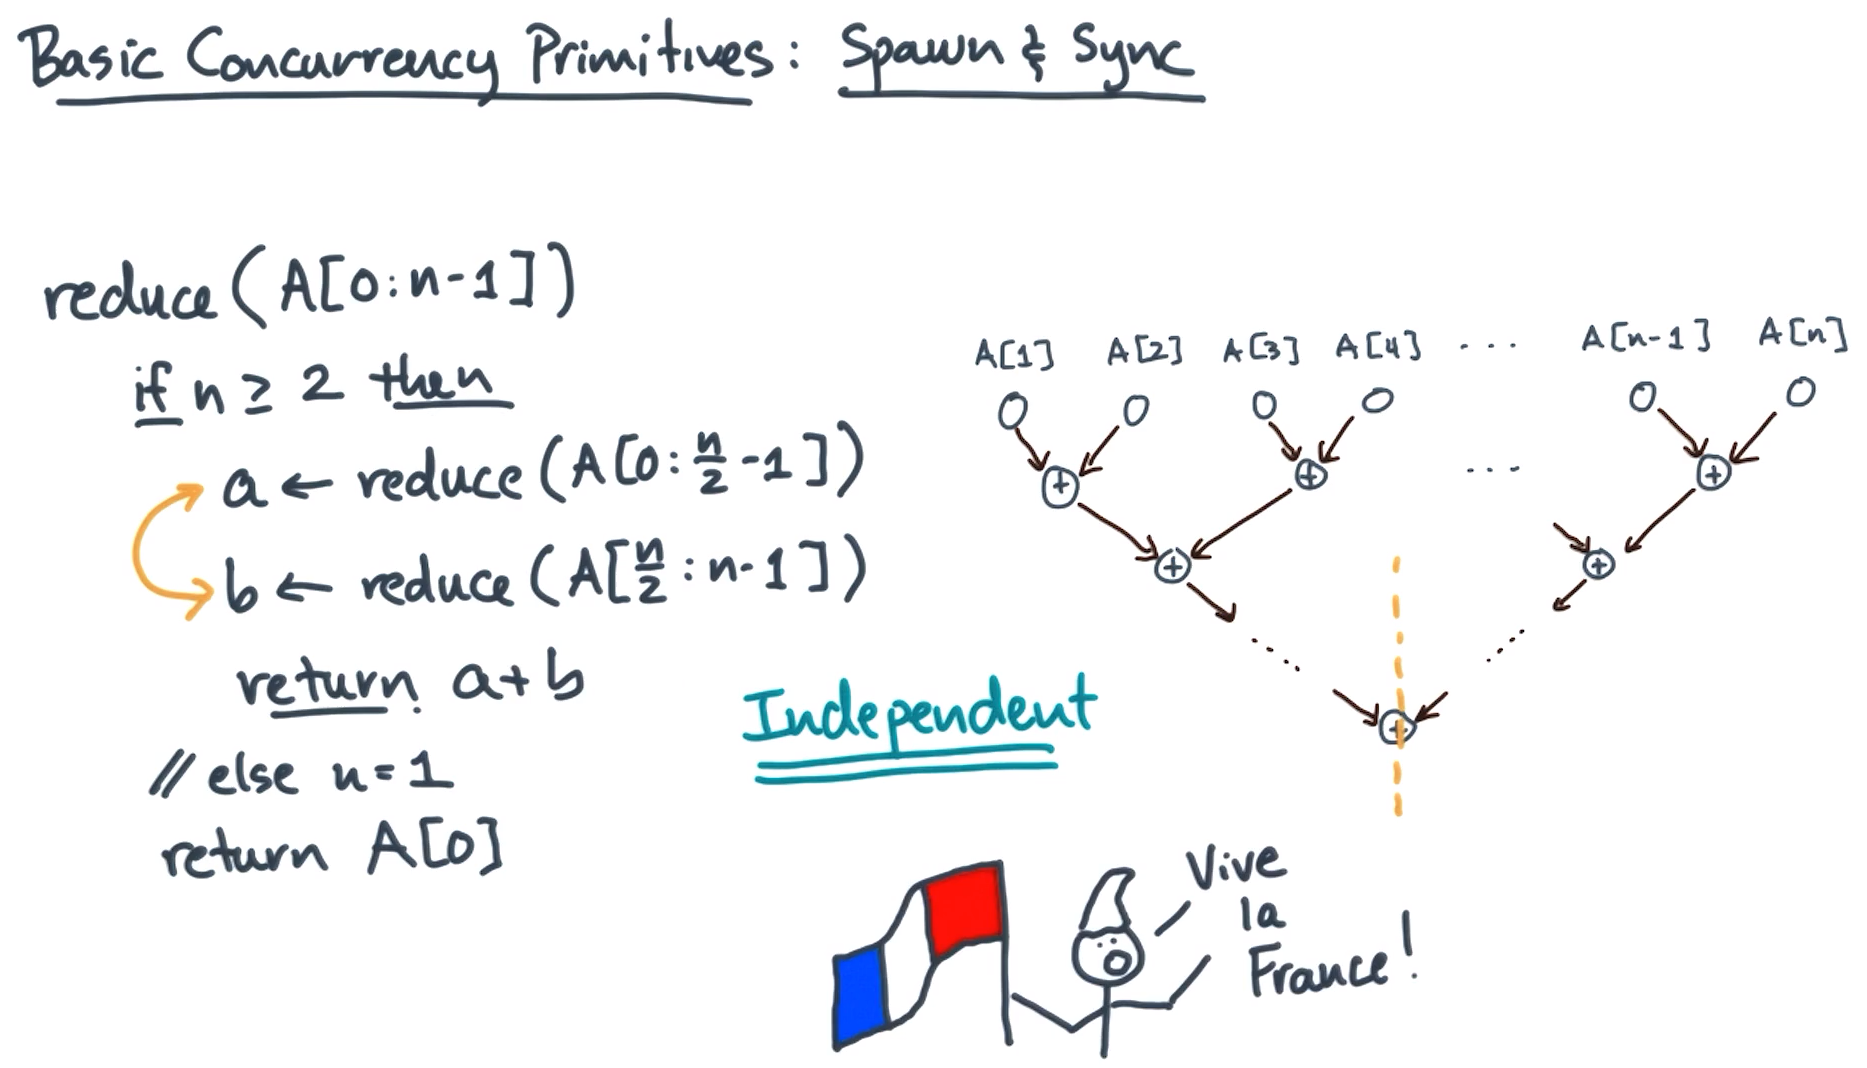 Basic Concurrency Primitives: Spawn & Sync
reduce(A[0:n-1])
if n ≥ 2 then
a ← reduce(A[0:n/2-1])
b ← reduce(A[n/2:n-1])
return a+b
// else n=1
return A[0]
A[1] A[2] A[3] A[4] ... A[n-1] A[n]
+ + ... +
+ +
+
Independent
Vive
la
France!